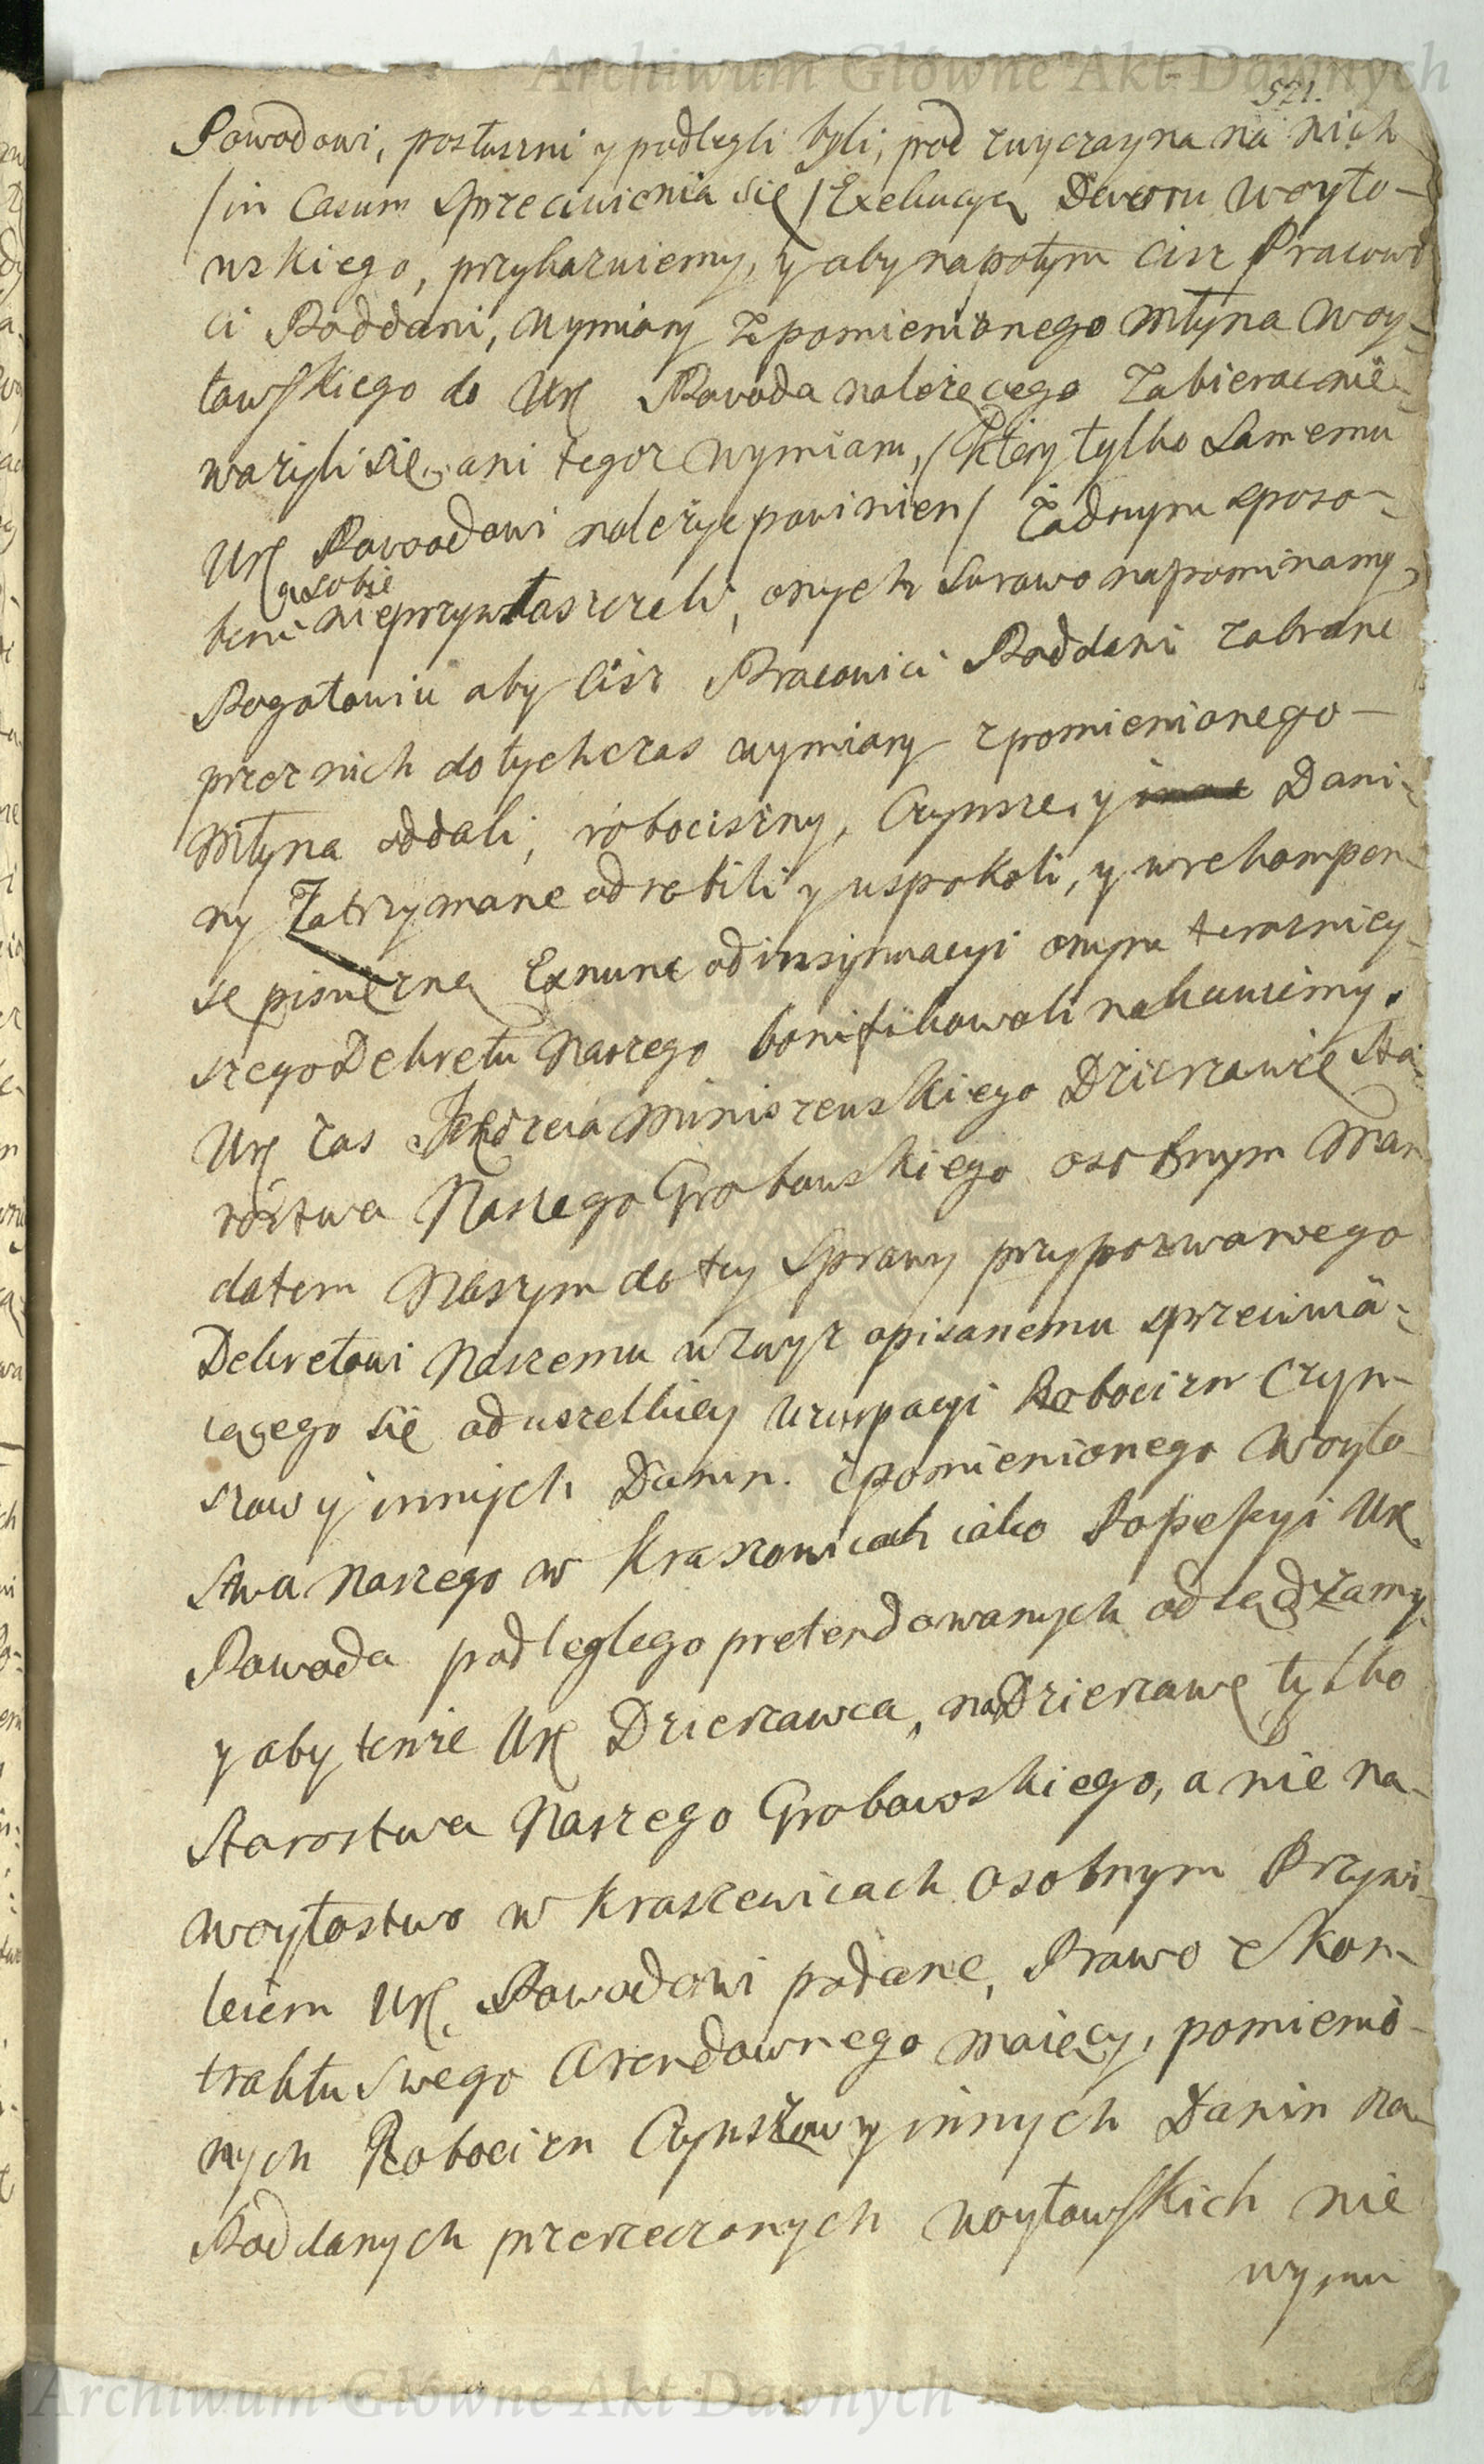 Archiwum Główne Akt Dawnych
521.
Powodowi, posłuszni y podlegli byli, pod zwyczayna na nich
/in Casum Sprzeciwienia się/ Exekucyą Dworu Woyto-
wskiego, przykazuiemy, y aby napotym ciż Pracowi
ci Poddani, wymiary z pomienionego Młyna Woy-
towskiego do Ur Powoda należącego Zabierac nie-
ważyli się, ani tegoż wymiaru, /ktory tylko Samemu
Ur Powodowi należyc powinien/ Żadnym sposo-
bem sobie nieprzywłaszczali, onych Surowo napominamy,
Pogotowiu aby ciż Pracowici Poddani zabrane
przez nich dotychczas wymiary z pomienionego-
Młyna oddali, robocizny, Czynsze, y Dani-
ny Zatrzymane odrobili y uspokoli, y wrekompen-
sę pieniężną Exnunc od insynuacyi onym teraźniey-
szego Dekretu Naszego bonifikowali nakazuiemy.
Ur zas Miniszewskiego Dzierzawcę Sta-
rostwa Naszego Grabowskiego osobnym Man-
datem Naszym do tey Sprawy przypozwanego
Dekretowi Naszemu wzwyż opisanemu sprzeciwia-
iącego się od wszelkiey Uzurpacyi Robocizn Czyn-
szow y innych Danin. z pomienionego Woyto-
Stwa Naszego w Kraszewicach iako Possessyi Ur
Powoda podległego pretendowanych odsądzamy,
y aby tenże Ur Dzierzawca, na Dzierzawę tylko
Starostwa Naszego Grabowskiego, a nie na-
Woytostwo w Kraszewicach Osobnym Przywi-
leiem Ur Powodowi podane, Prawo z Kon-
traktu Swego Arendownego maiący, pomienio-
nych Robocizn Czynszow y innych Danin na-
Poddanych przerzeczonych Woytowskich nie
wymu
Archiwum Główne Akt Dawnych